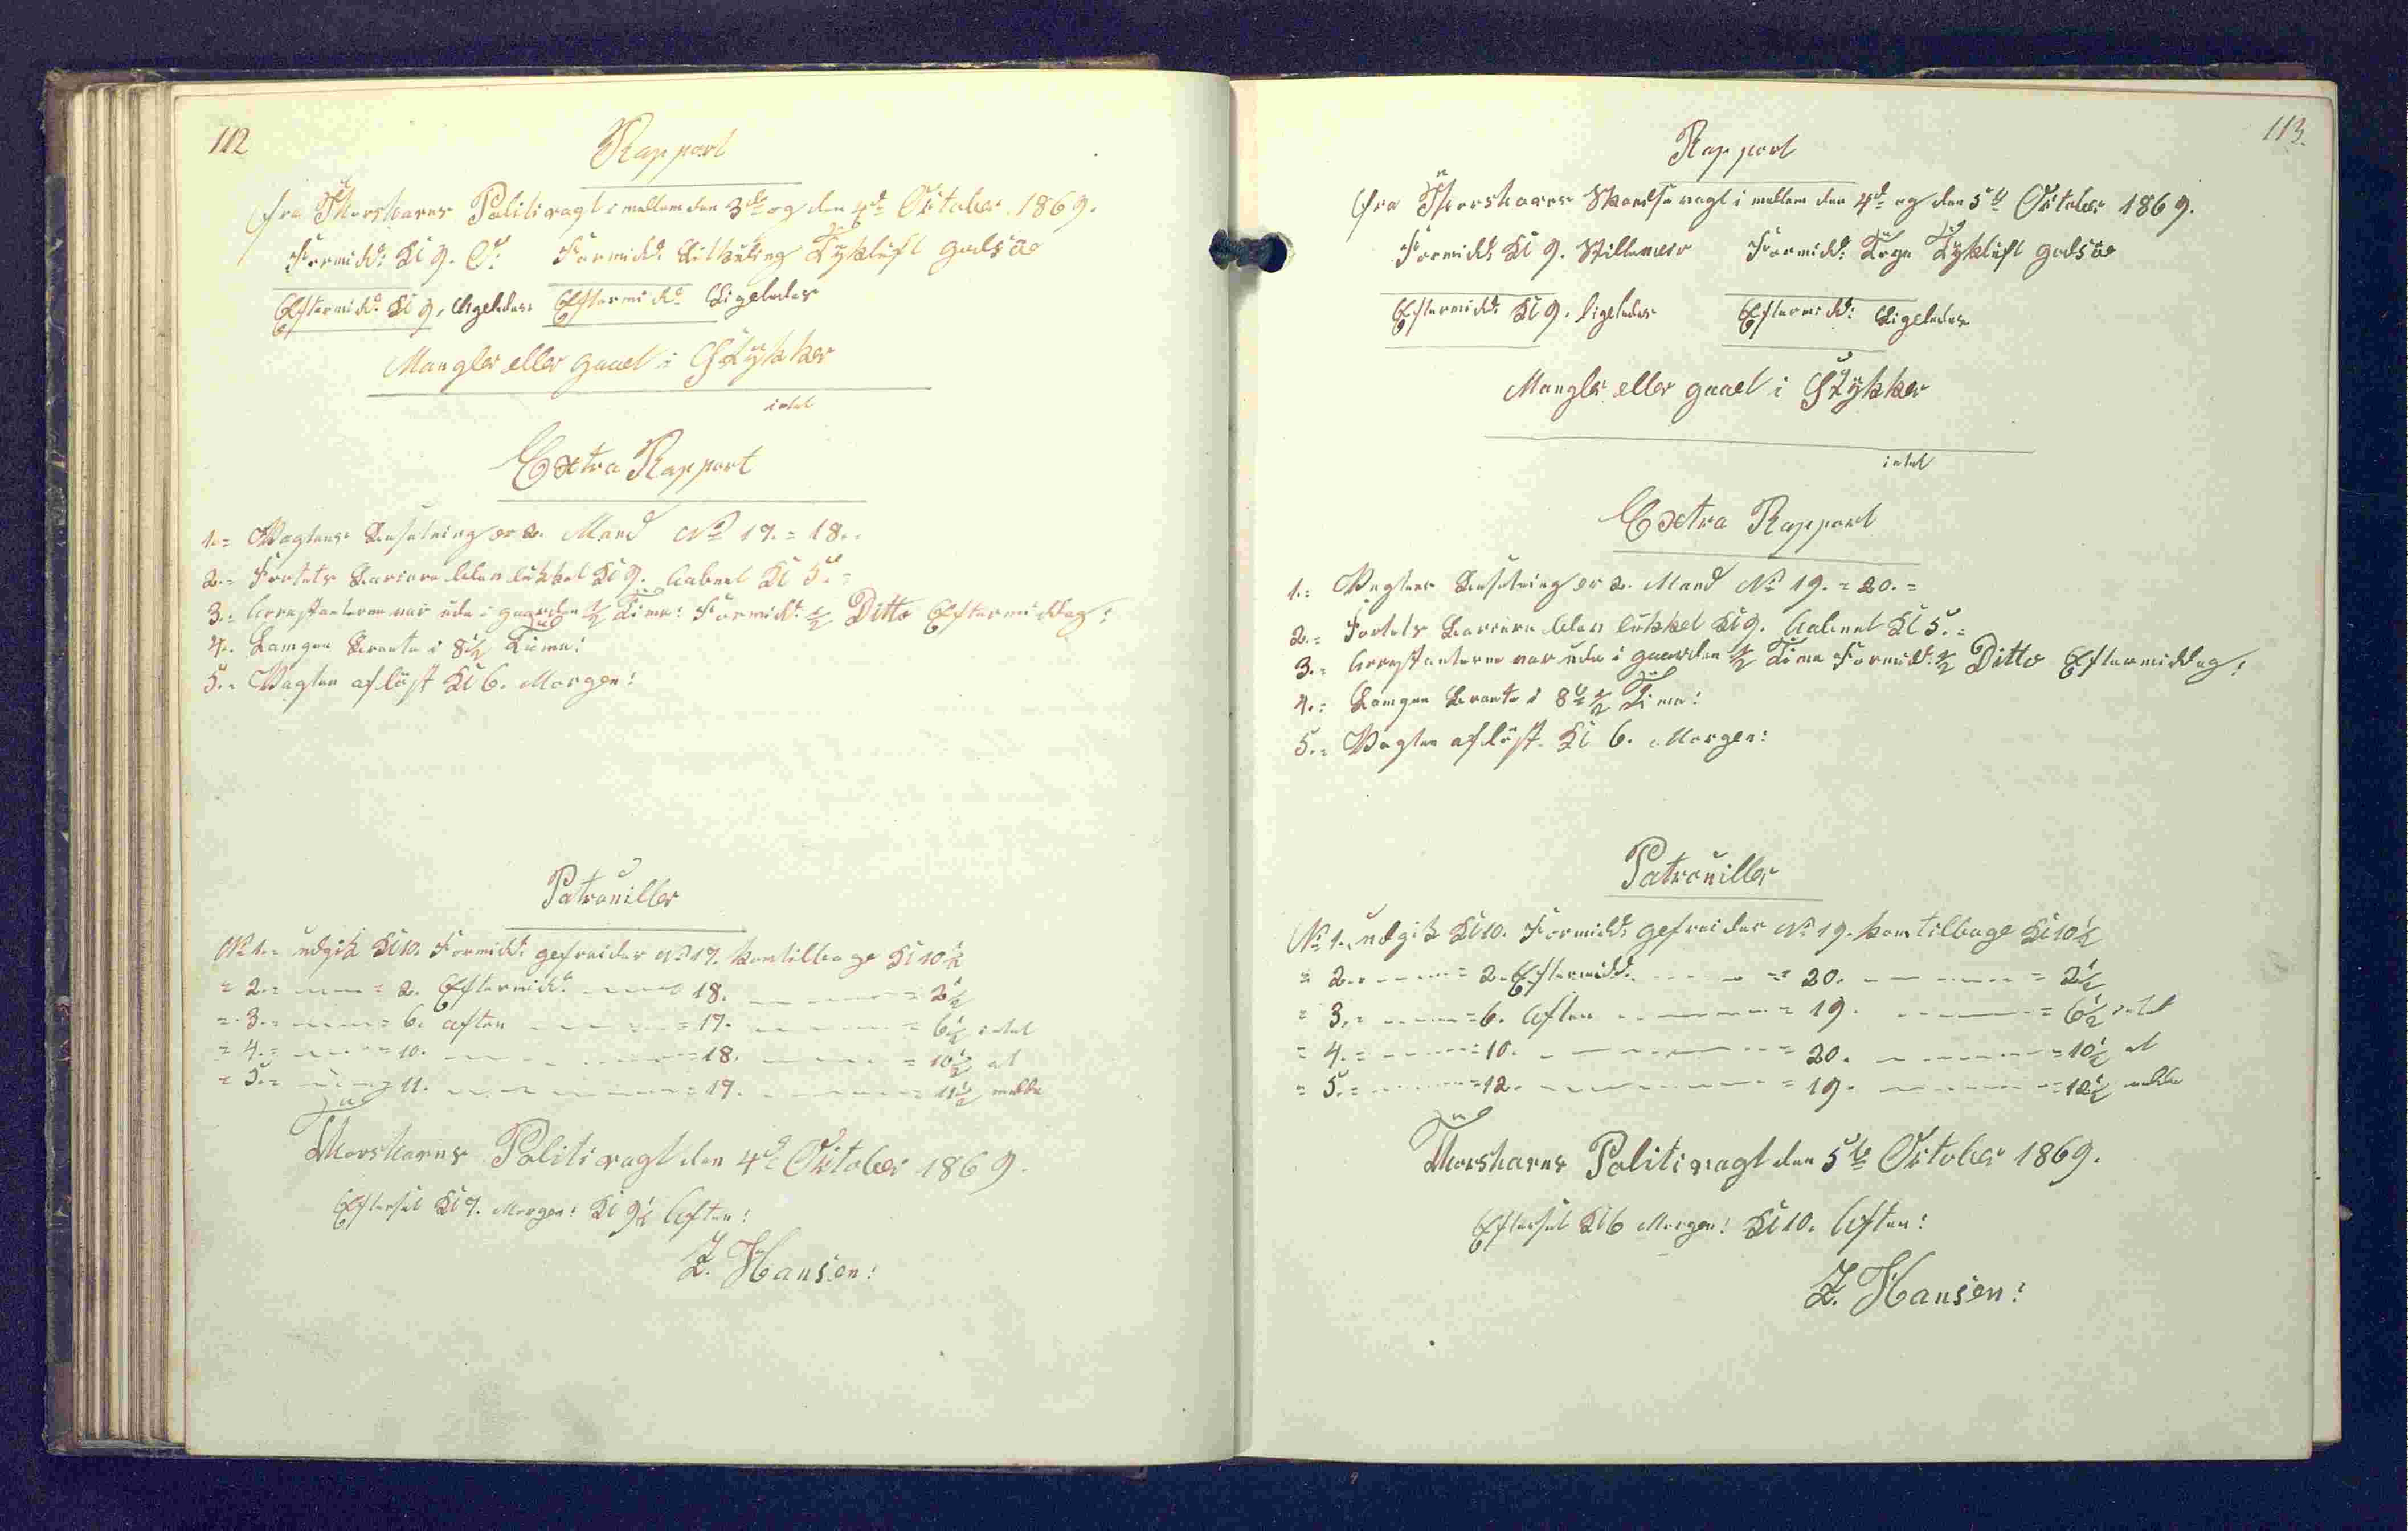 112
Rapport
fra Thorshavns Politivagt imellem den 3de og den 4de October 1869.
Formidd: Kl 9. O: Formidd: Lilkuling Tykluft godsöe
Eftermidd: Kl 9. ligeledes Eftermidd: Ligeledes
Mangler eller gaaet i Stykker
intet
Extra Rapport
1.= Vagtens Besetning er 2. Mand No 17. = 18..
2.= Fortets Bariere blev lukket Kl 9. Aabnet Kl 5.=
3.= Arrestanterne var ude i gaarden 1/2 Time: Formidd: 1/2 Ditto Eftermiddag:
4.. Lampen Brænte i 8 1/2 Time:
5.. Vagten aflöst Kl 6. Morgen:
Patrouiller
No 1.= udgik Kl 10. Formidd: gefreider No 17. kom tilbage Kl 10 1/2
= 2.= — — = 2. Eftermidd: — — 18. — — = 2 1/2
= 3.= — — = 6. Aften — — = 17. — — = 6 1/2 intet
= 4.= — — = 10. — — — = 18. — — = 10 1/2 at
= 5.= — — = 11. — — — = 17. — — = 11 1/2 melde
Thorshavns Politivagt den 4de October 1869.
Eftersét Kl 7. Morgen: Kl 9 1/2 Aften:
Z. Hansen:
113.
Rapport
fra Thorshavns Skandsevagt imellem den 4de og den 5te October 1869.
Formidd: Kl 9. Stille Formidd: Taage Tykluft godsöe
Eftermidd: Kl 9. ligeledes Eftermidd: Ligeledes
Mangler eller gaaet i Stykker
intet
Extra Rapport
1.= Vagtens Besetning er 2. Mand No 19. = 20. =
2.= Fortets Bariere blev lukket Kl 9. Aabnet Kl 5.=
3.= Arrestanterne var ude i gaarden 1/2 Time Formidd: 1/2 Ditto Eftermiddag:
4.= Lampen Brænte i 8 1/2 Time:
5.= Vagten aflöst Kl 6. Morgen:
Patrouiller
No 1. udgik Kl 10. Formidd: gefreider No 19. kom tilbage Kl 10 1/2
= 2.= — — = 2. Eftermidd: — — = 20. — — = 2 1/2
= 3.= — — = 6. Aften — — = 19. — — = 6 1/2 intet
= 4.= — — = 10. — — — = 20. — — = 10 1/2 at
= 5.= — — = 12. — — — = 19. — — = 12 1/2 melde
Thorshavns Politivagt den 5te October 1869.
Eftersét Kl 6 Morgen: Kl 10. Aften:
Z. Hansen: